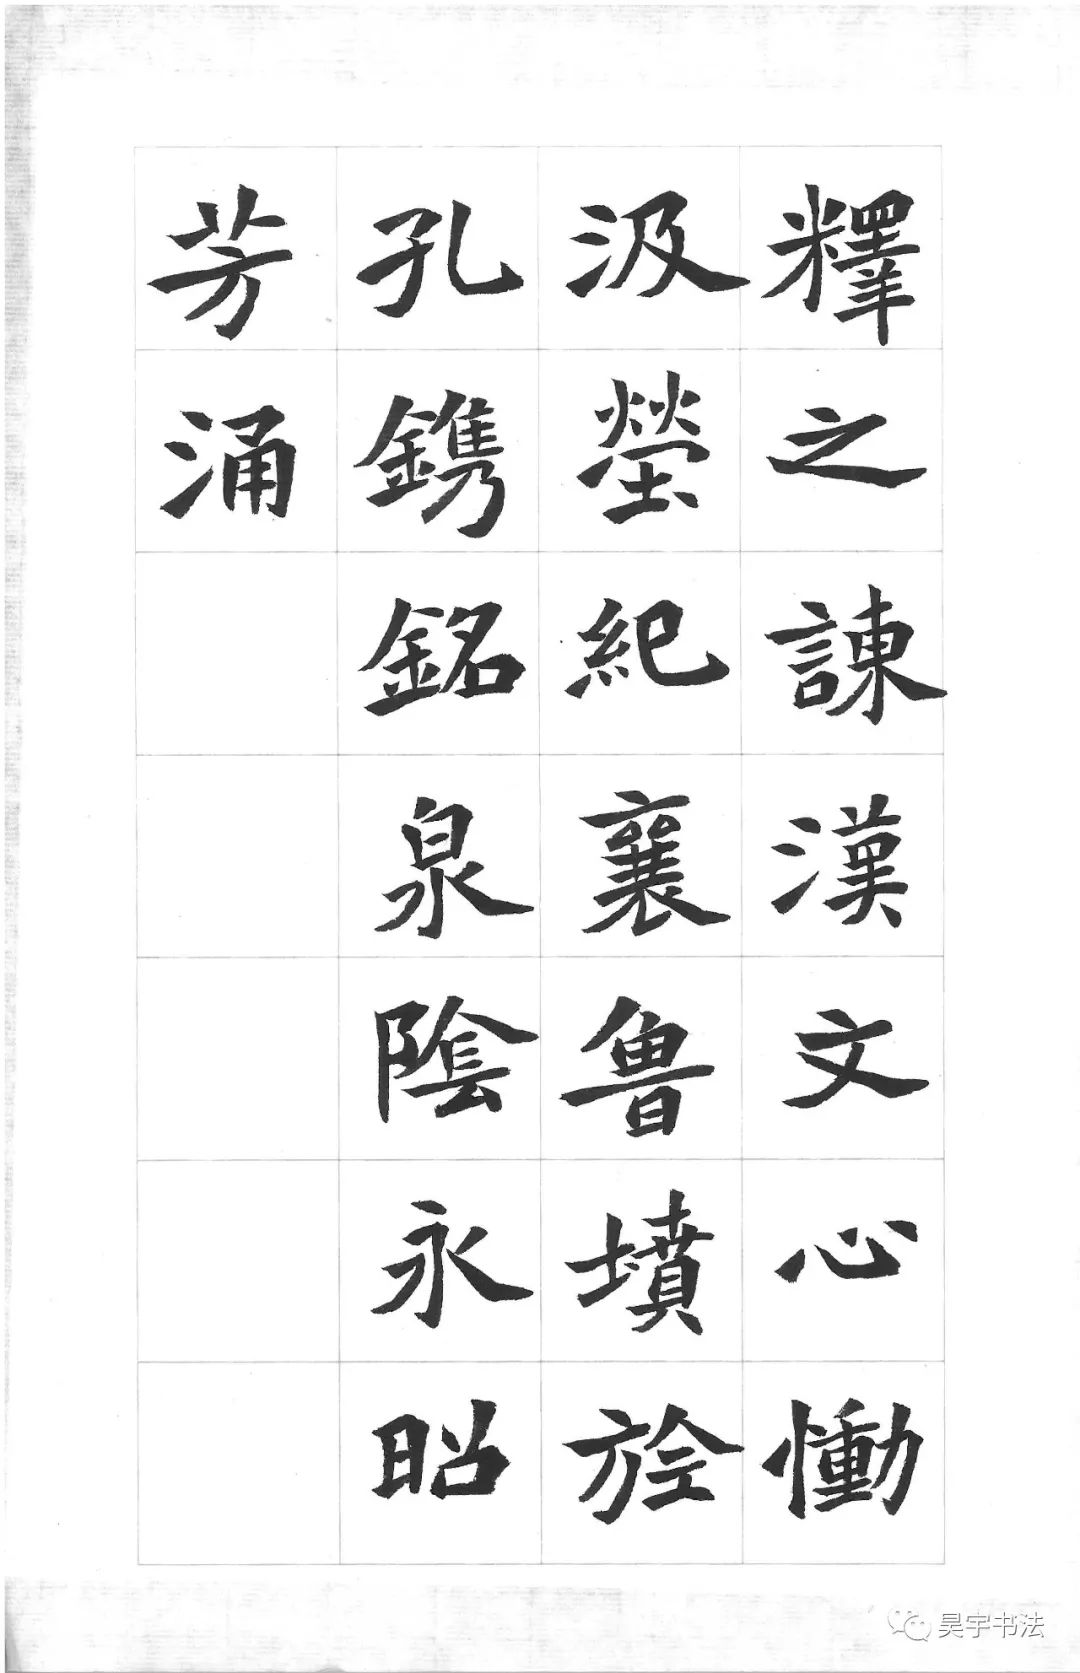 釋之諫漢文心慟
汲塋紀襄魯墳於
孔鎸銘泉陰永昭
芳涌
昊宇书法